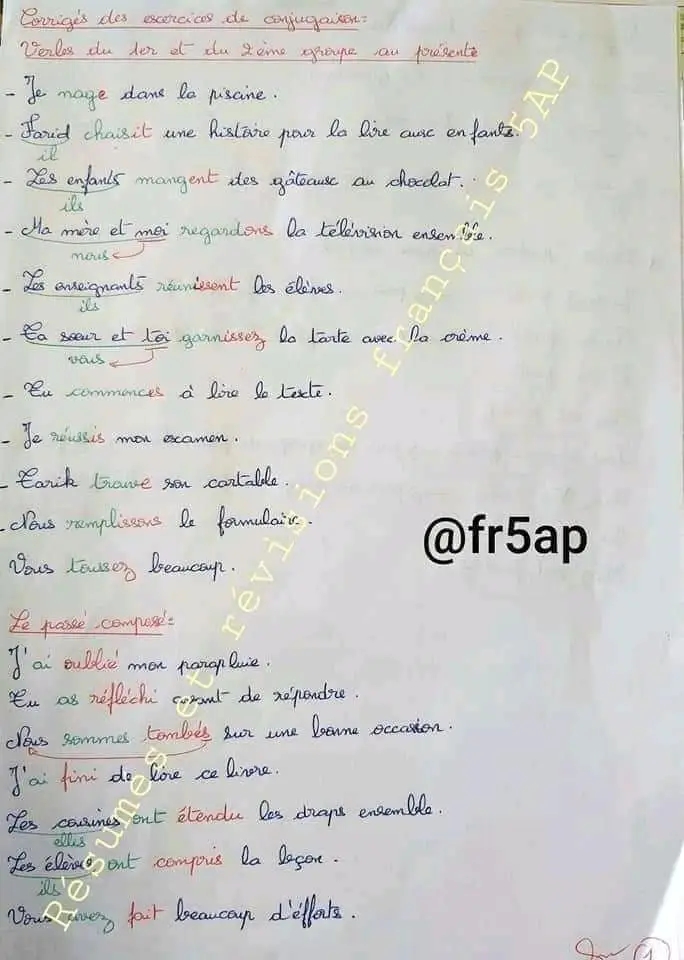 Corrigés des exercices de conjugaison:
Verbes du 1er et du 2ème groupe au présent
- Je nage dans la piscine.
- Farid choisit une histoire pour la lire aux enfants.
il
- Les enfants mangent des gâteaux au chocolat.
ils
- Ma mère et moi regardons la télévision ensemble.
nous
- Les enseignants réunissent les élèves.
ils
- Ta sœur et toi garnissez la tarte avec la crème.
vous
- Tu commences à lire le texte.
- Je réussis mon examen.
- Tarik trouve son cartable.
- Nous remplissons le formulaire.
Vous toussez beaucoup.
@fr5ap
Le passé composé:
J'ai oublié mon parapluie.
Tu as réfléchi avant de répondre.
Nous sommes tombés sur une bonne occasion.
J'ai fini de lire ce livre.
Les cousines ont étendu les draps ensemble.
elles
Les élèves ont compris la leçon.
ils
Vous avez fait beaucoup d'éfforts.
Résumés et révisions français 5AP
1